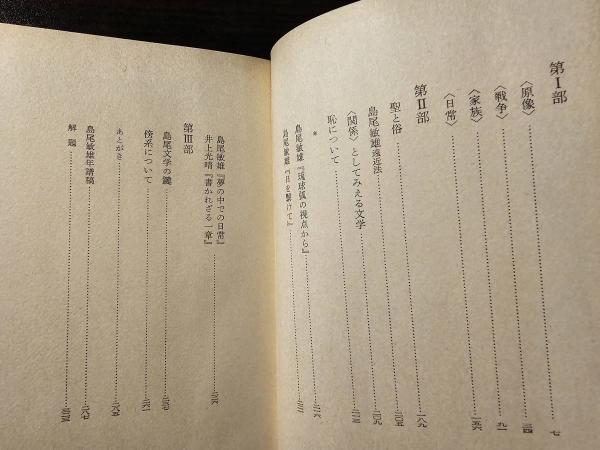 第Ⅰ部……七
〈原像〉……三四
〈戦争〉……九一
〈家族〉……一五六
〈日常〉……一八九
第Ⅱ部
聖と俗……二〇五
島尾敏雄遠近法……二〇九
〈関係〉としてみえる文学……二一三
恥について
*
島尾敏雄『琉球弧の視点から』
島尾敏雄『日を繋けて』
島尾敏雄『夢の中での日常』
井上光晴『書かれざる一章』
第Ⅲ部
島尾文学の鍵
傍系について
あとがき
島尾敏雄年譜稿
解題